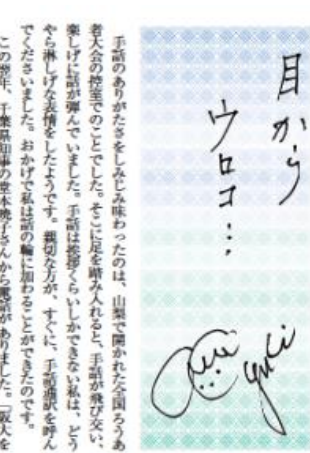 目から
ウロコ…
手話のありがたさをしみじみ味わったのは、山梨で開かれた全国ろうあ
者大会の控室でのことでした。そこに足を踏み入れると、手話が飛び交い、
楽しげに話が弾んでいました。手話は挨拶くらいしかできない私は、どう
やら淋しげな表情をしたようです。親切な方が、すぐに、手話通訳を呼ん
でくださいました。おかげで私は話の輪に加わることができたのです。
この翌年、千葉県知事の堂本暁子さんから電話がありました。「暇人を